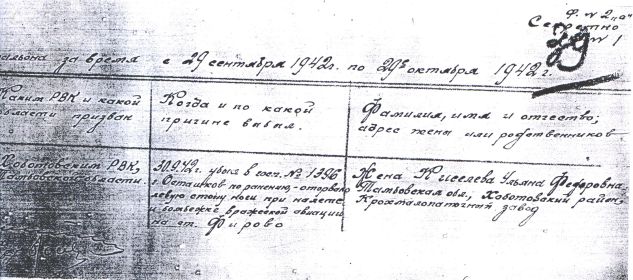 Ф. № 2 "а"
Секретно
№ 1
29
за время с 29 сентября 1942 г. по 29 октября 1942 г.
Каким РВК и какой
области призван
Когда и по какой
причине выбыл.
Фамилия, имя и отчество;
адрес жены или родственников
Хоботовским РВК,
Тамбовской области.
30.9.42 г. убыл в госп. № 1396
г. Осташков по ранению, оторвало
левую стопу ноги при налете
и бомбежке вражеской авиации
на ст. Фирово
Жена Киселева Ульяна Федоровна
Тамбовская обл., Хоботовский район,
Крохмалопаточный завод